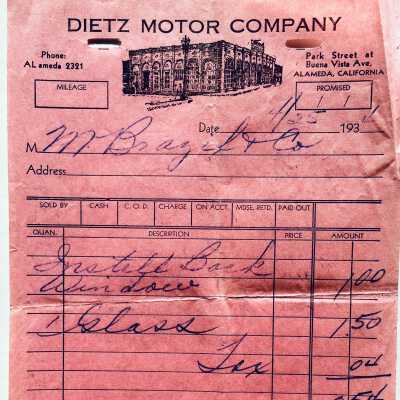 DIETZ MOTOR COMPANY
Phone:
ALameda 2321
Park Street at
Buena Vista Ave.
ALAMEDA, CALIFORNIA
MILEAGE
PROMISED
Date 4/25 193
M & Co
Address
SOLD BY CASH C. O. D. CHARGE ON ACCT. MDSE. RETD. PAID OUT
QUAN. DESCRIPTION PRICE AMOUNT
Install Back
Window 1.00
1 Glass 1.50
Tax .04
2.54